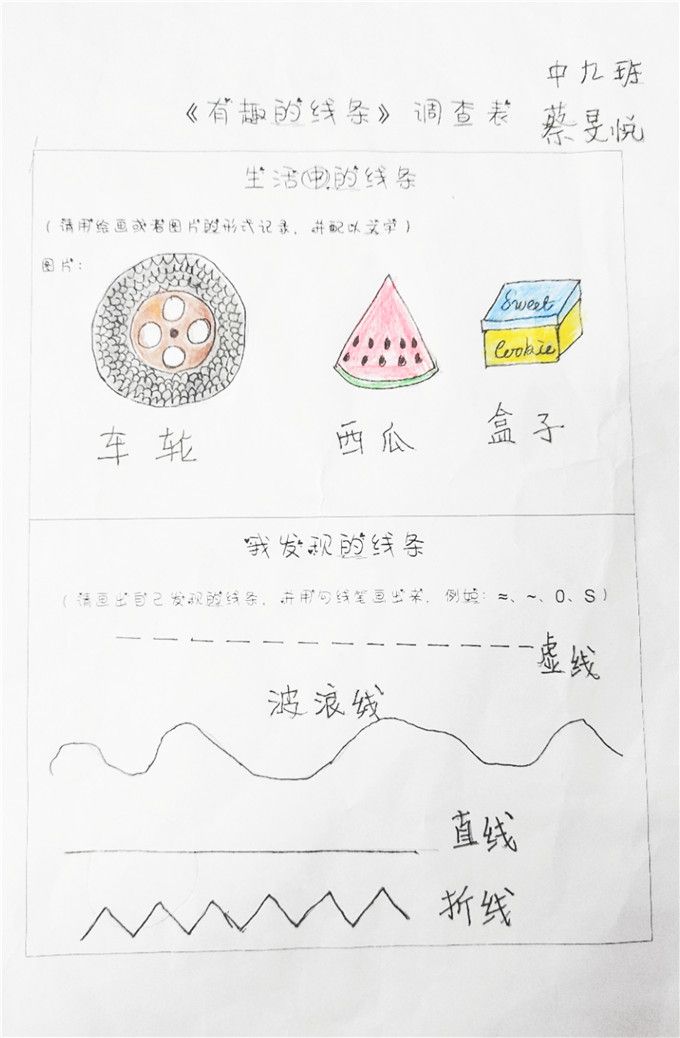 中九班
《有趣的线条》调查表
蔡旻悦
生活中的线条
（请用绘画或者图片的形式记录，并配以文字）
图片：
Sweet
Cookie
车轮
西瓜
盒子
我发现的线条
（请画出自己发现的线条，并用勾线笔画出来，例如：≈、~、O、S）
虚线
波浪线
直线
折线